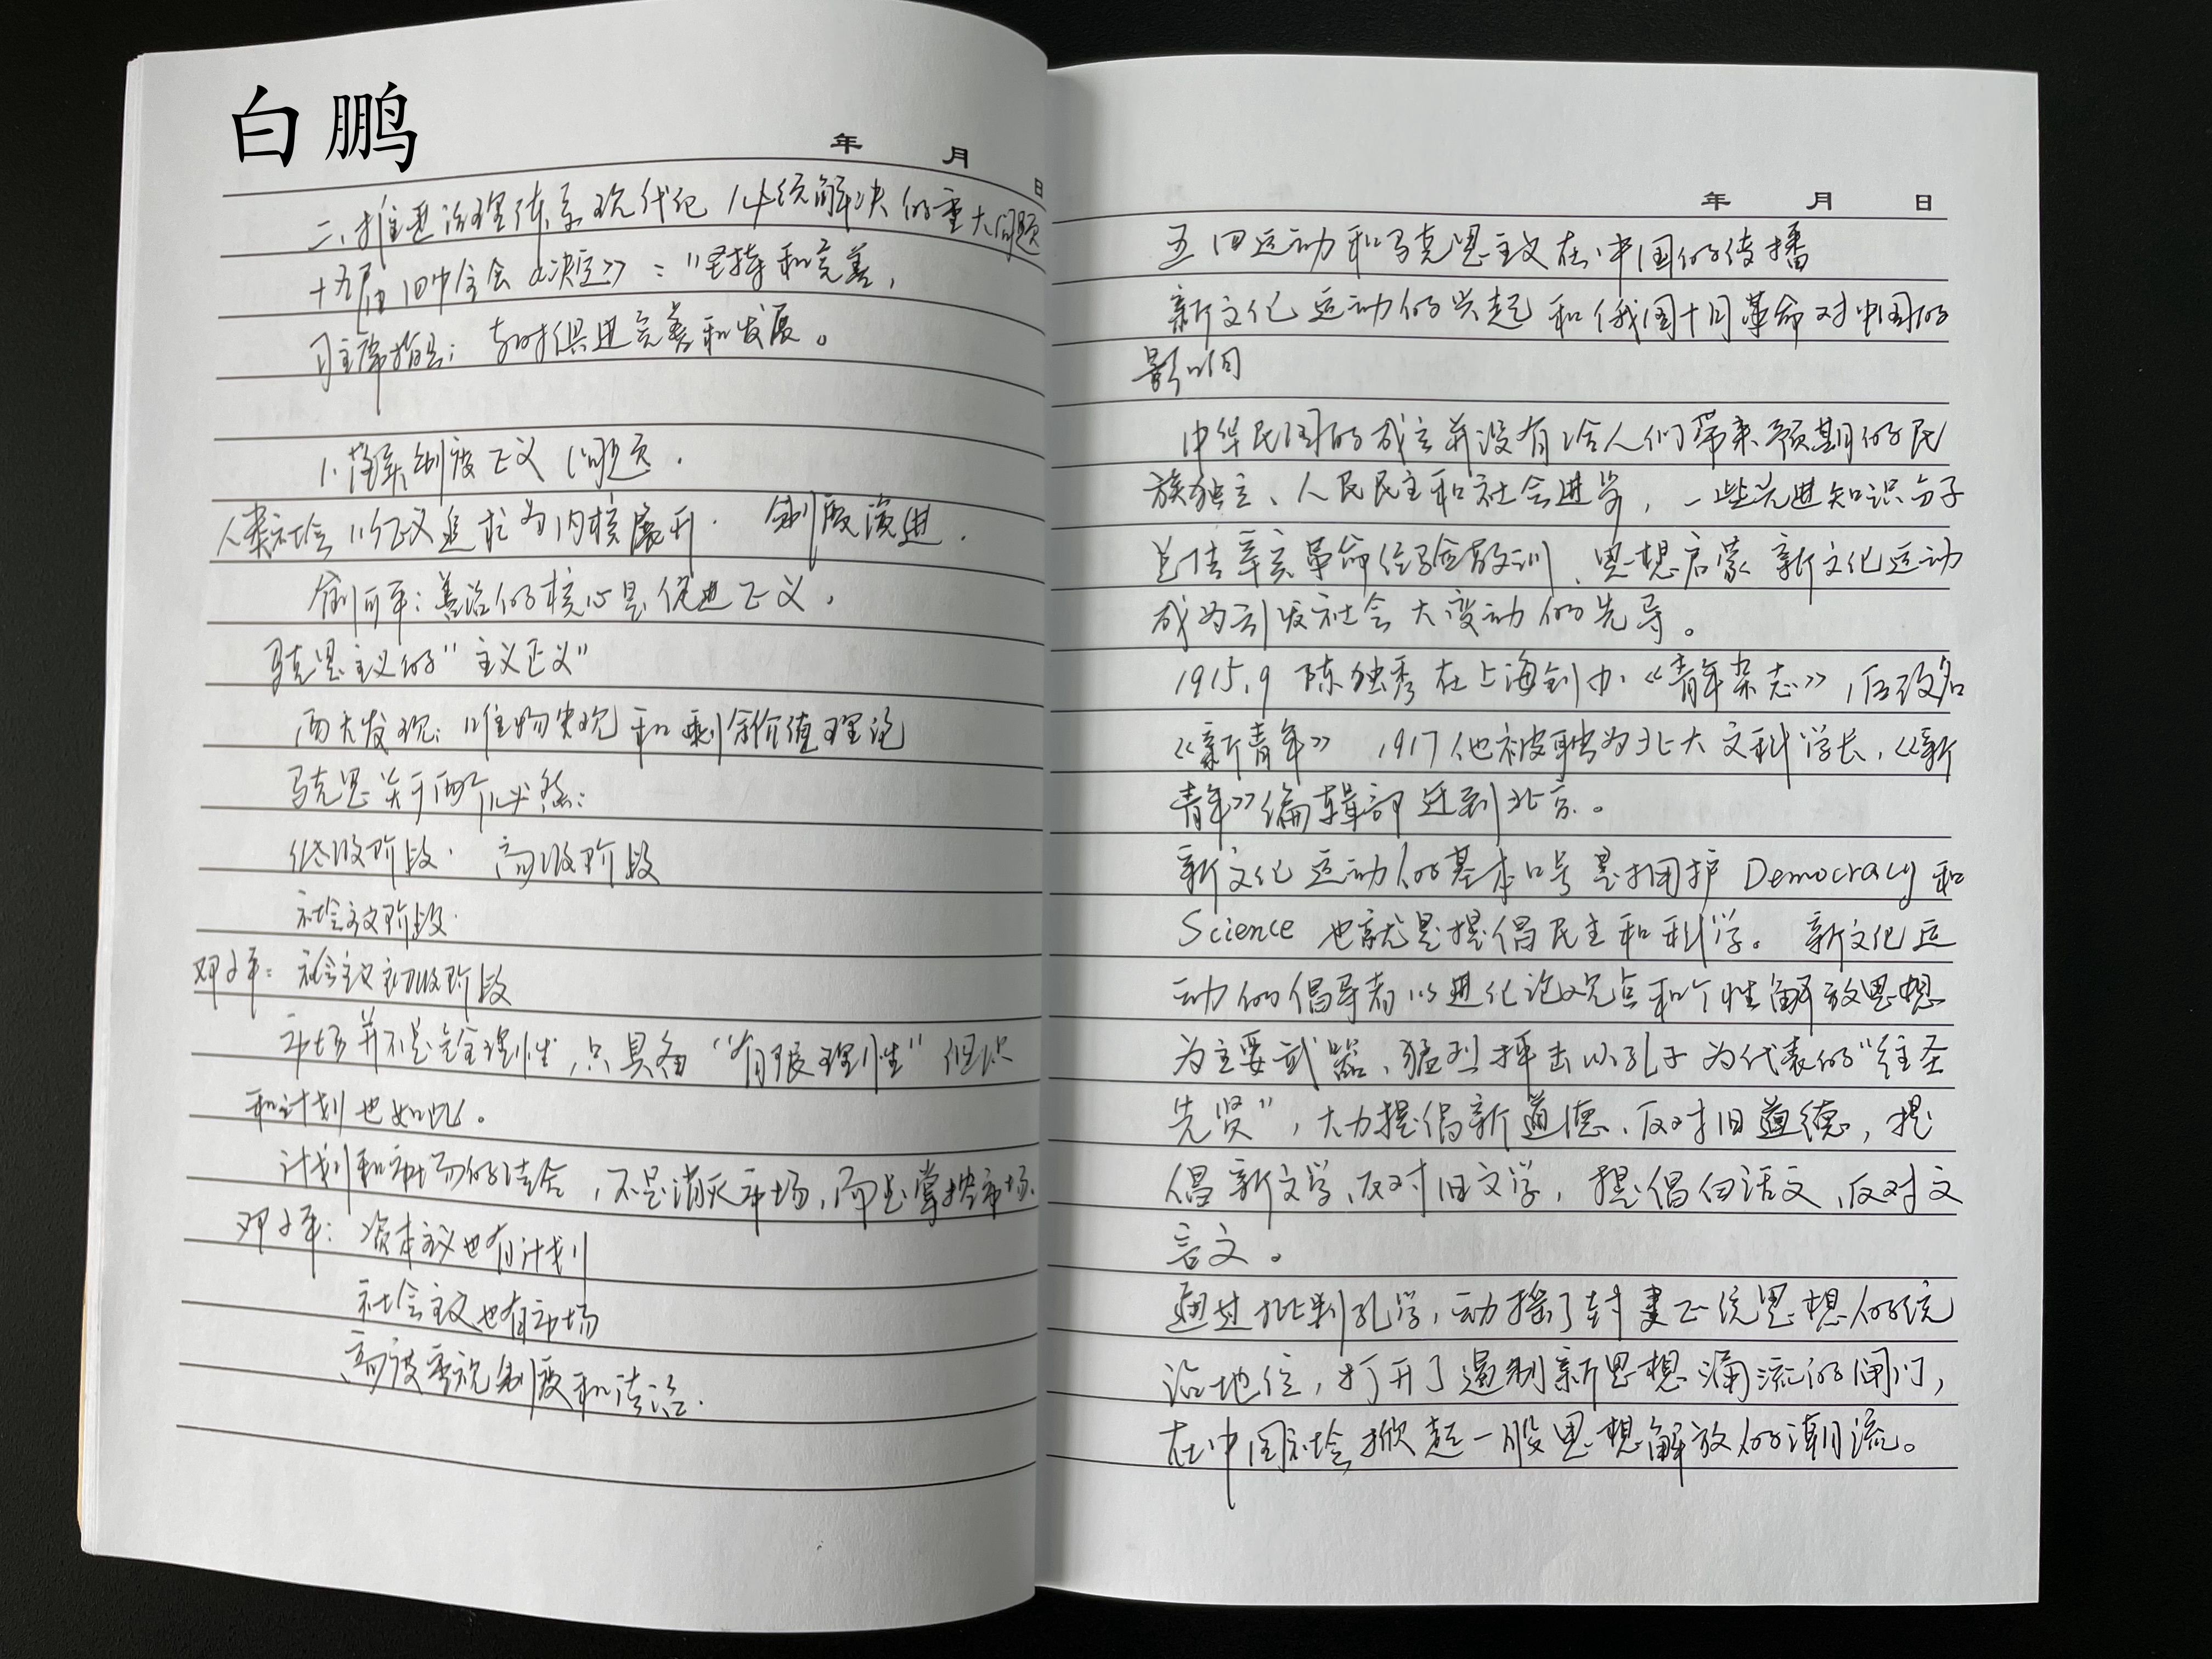 白鹏
年 月 日
二、推进治理体系现代化必须解决的重大问题
十九届四中全会《决定》：“坚持和完善，
习主席指出：与时俱进完善和发展。
1、制度正义问题.
人类社会以正义追求为内核 制度演进.
俞可平：善治的核心是促进正义.
马克思主义的“主义正义”
两大发现：唯物史观和剩余价值理论
马克思关于两个必然：
低级阶段. 高级阶段
社会主义阶段.
邓小平：社会主义初级阶段
市场并不是完全理性，只具备“有限理性”但
和计划也如此。
计划和市场的结合，不是消灭市场，而是掌控市场.
邓小平：资本主义也有计划
社会主义也有市场
高度重视制度和法治.
年 月 日
五四运动和马克思主义在中国的传播
新文化运动的兴起和俄国十月革命对中国的
影响
中华民国的成立并没有给人们带来预期的民
族独立、人民民主和社会进步，一些先进知识分子
总结辛亥革命经验教训、思想启蒙 新文化运动
成为引发社会大变动的先导。
1915.9 陈独秀在上海创办《青年杂志》，后改名
《新青年》 1917他被聘为北大文科学长，《新
青年》编辑部迁到北京。
新文化运动的基本口号是拥护 Democracy 和
Science 也就是提倡民主和科学。 新文化运
动的倡导者以进化论观点和个性解放思想
为主要武器、猛烈抨击以孔子为代表的“往圣
先贤”，大力提倡新道德、反对旧道德，提
倡新文学、反对旧文学，提倡白话文、反对文
言文。
通过批判孔学，动摇了封建正统思想的统
治地位，打开了遏制新思想涌流的闸门，
在中国社会掀起一股思想解放的潮流。